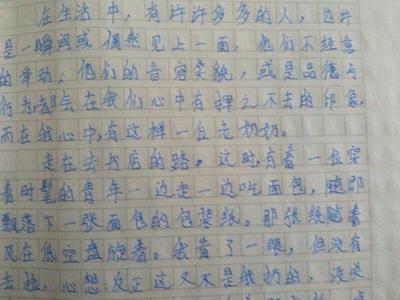 在生活中，有许许多多的人，也许
是一瞬间或偶然见上一面，他们不经意
的举动，他们的音容笑貌，或是品德与
行为，都会在我们心中有挥之不去的印象，
而在我心中，有这样一位老奶奶。
走在去书店的路。这时，有着一位穿
着时髦的青年一边走一边吃面包，随即
飘落下一张面包的包装纸。那张纸随着
风在低空盘旋着。我看了一眼，但没有
去捡，心想：反正这又不是我扔的，没关